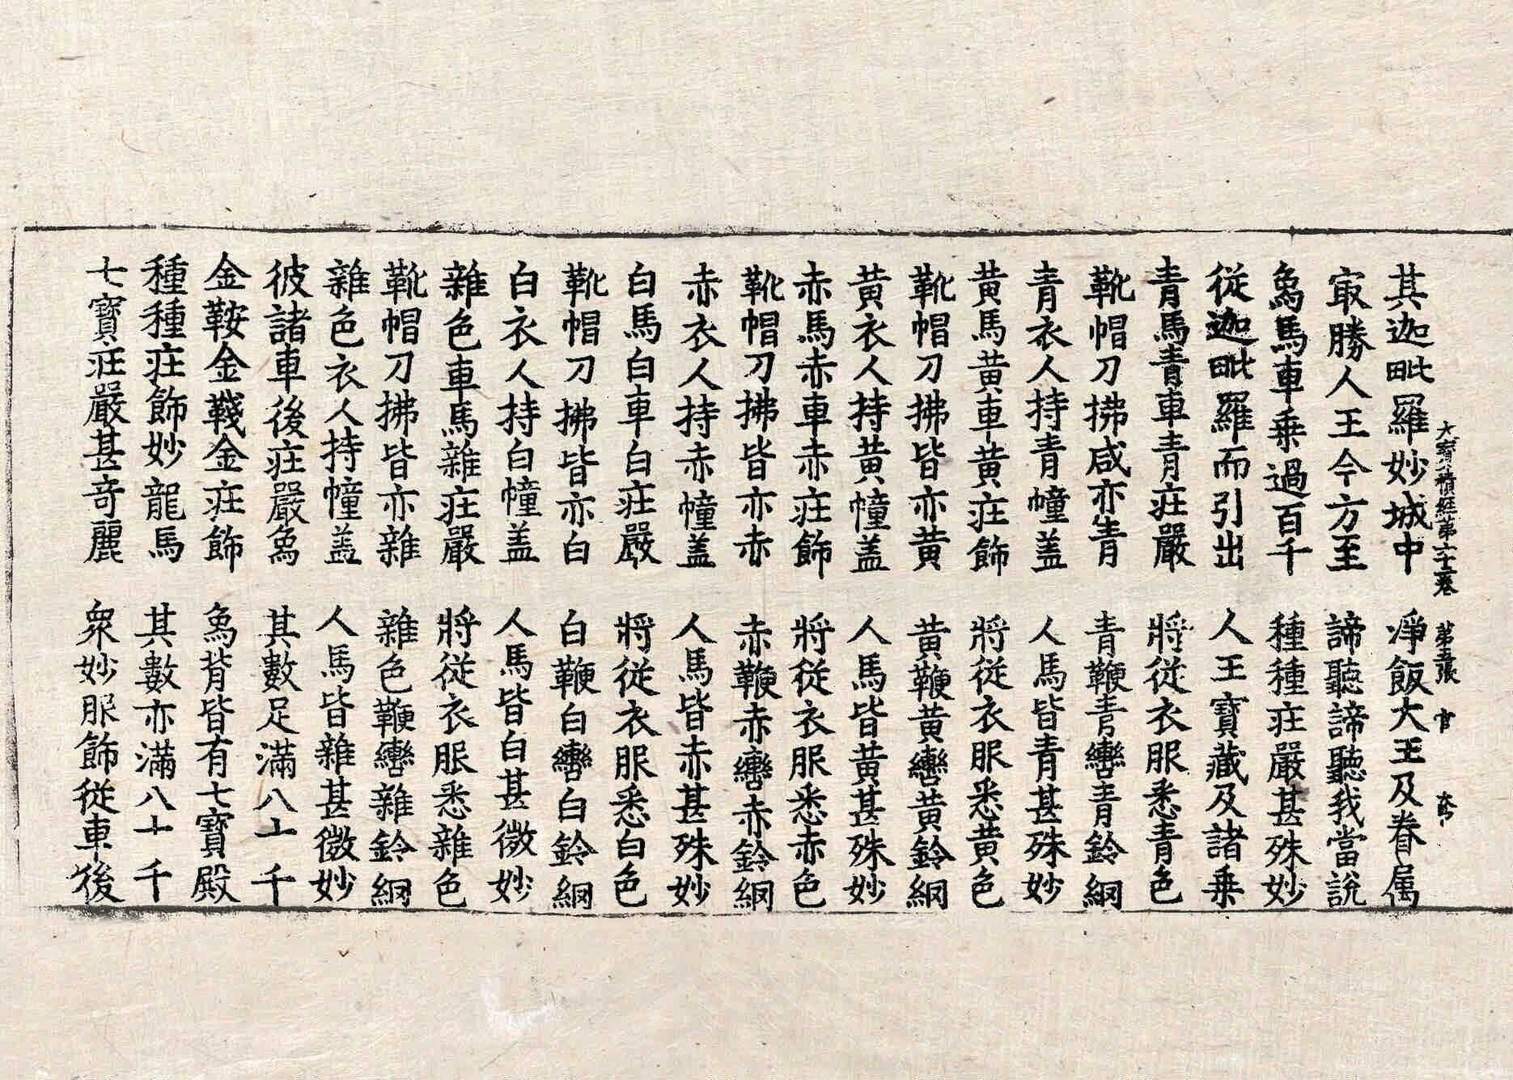 大寳積經第 卷 第五張 官
其迦毗羅妙城中 淨飯大王及眷属
㝡勝人王今方至 諦聽諦聽我當說
象馬車乗過百千 種種莊嚴甚殊妙
從迦毗羅而引出 人王寶藏及諸乗
青馬青車青莊嚴 將從衣服悉青色
靴帽刀拂咸亦青 青鞭青轡青鈴網
青衣人持青幢盖 人馬皆青甚殊妙
黄馬黄車黄莊飾 將從衣服悉黄色
靴帽刀拂皆亦黄 黄鞭黄轡黄鈴網
黄衣人持黄幢盖 人馬皆黄甚殊妙
赤馬赤車赤莊飾 將從衣服悉赤色
靴帽刀拂皆亦赤 赤鞭赤轡赤鈴網
赤衣人持赤幢盖 人馬皆赤甚殊妙
白馬白車白莊嚴 將從衣服悉白色
靴帽刀拂皆亦白 白鞭白轡白鈴網
白衣人持白幢盖 人馬皆白甚微妙
雜色車馬雜莊嚴 將從衣服悉雜色
靴帽刀拂皆亦雜 雜色鞭轡雜鈴網
雜色衣人持幢盖 人馬皆雜甚微妙
彼諸車後莊嚴象 其數足滿八十千
金鞍金韉金莊飾 象背皆有七寶殿
種種莊飾妙龍馬 其數亦滿八十千
七寶莊嚴甚奇麗 衆妙服飾從車後